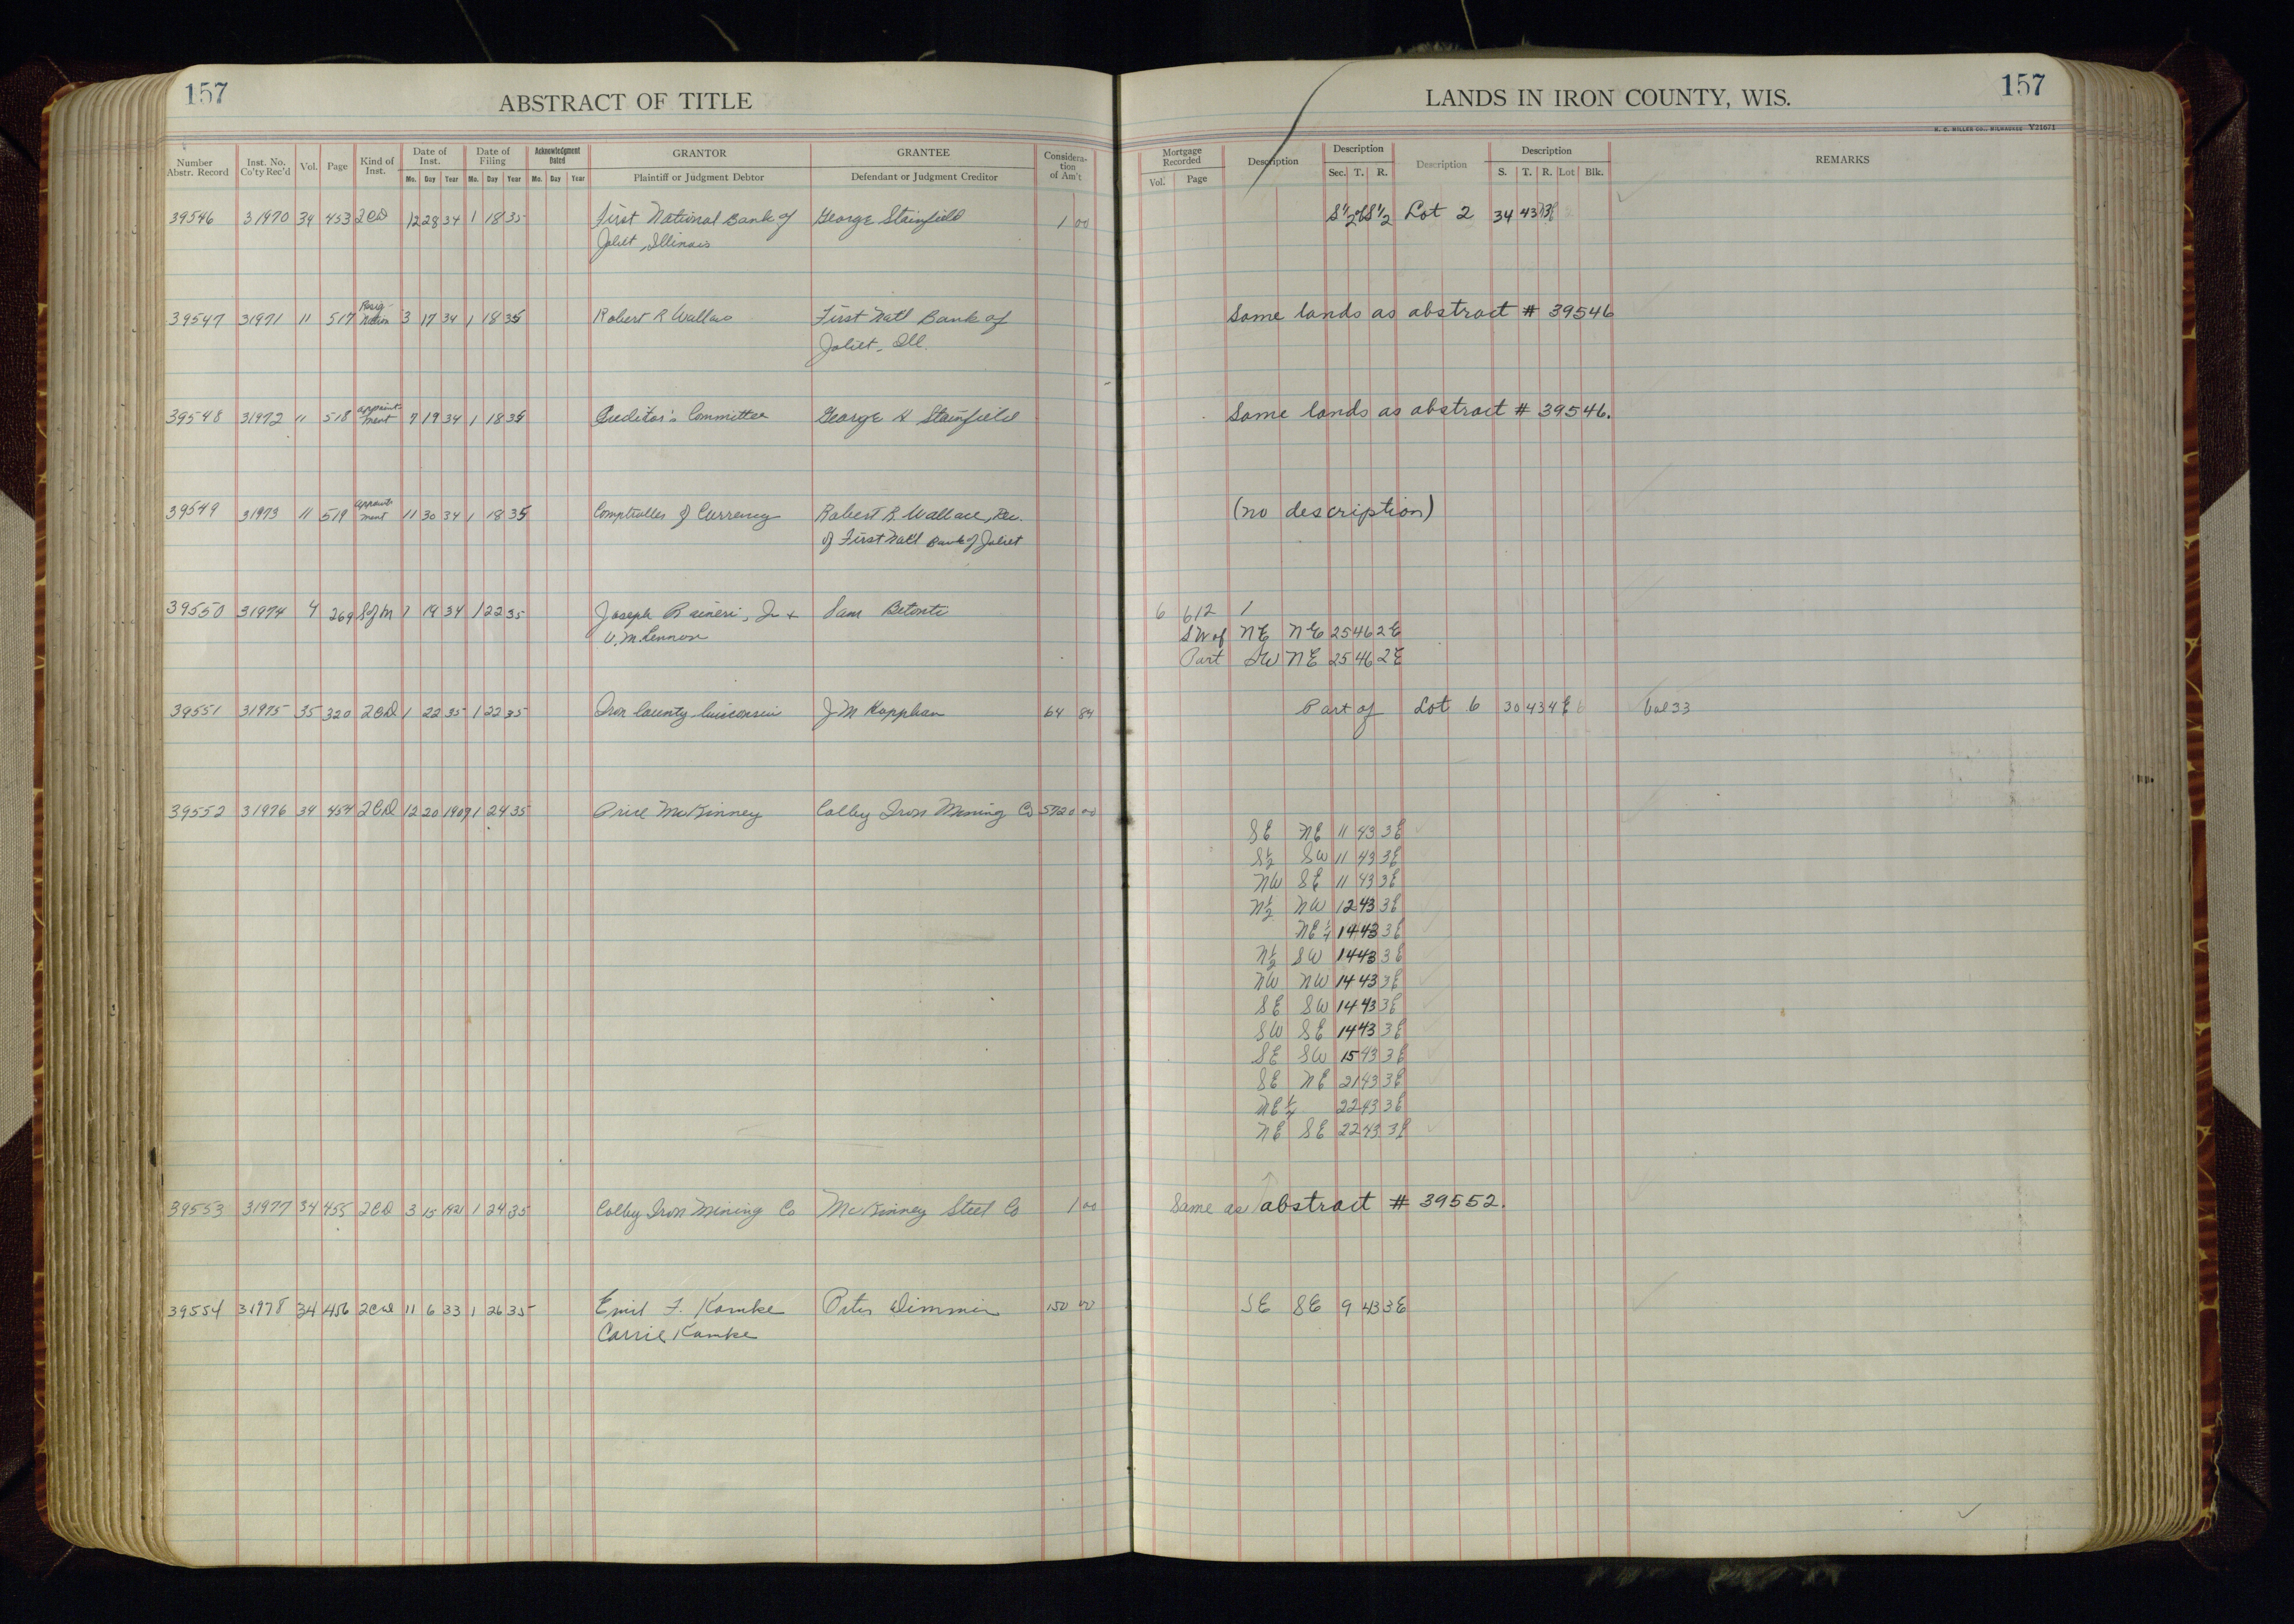 157
ABSTRACT OF TITLE
Number Abstr. Record Inst. No. Co'ty Rec'd Vol. Page Kind of Inst. Date of Inst. Mo. Day Year Date of Filing Mo. Day Year Acknowledgment Dated Mo. Day Year GRANTOR Plaintiff or Judgment Debtor GRANTEE Defendant or Judgment Creditor Consideration of Am't
39546 31970 34 453 2CD 12 28 34 1 18 35 First National Bank of George Stainfield 1 00
Joliet, Illinois
39547 31971 11 517 Resignation 3 17 34 1 18 35 Robert R Wallace First Nat'l Bank of
Joliet, Ill.
39548 31972 11 518 Appointment 7 19 34 1 18 35 Creditor's Committee George H Stainfield
39549 31973 11 519 Appointment 11 30 34 1 18 35 Comptroller of Currency Robert R. Wallace, Rec.
of First Nat'l Bank of Joliet
39550 31974 4 269 SofM 7 19 34 1 22 35 Joseph Raineri, Jr + Sam Betonti
V. M. Lennon
39551 31975 35 320 2CD 1 22 35 1 22 35 Iron County Wisconsin J M Kopplan 64 84
39552 31976 34 454 2CD 12 20 1909 1 24 35 Price McKinney Colby Iron Mining Co 5720 00
39553 31977 34 455 2CD 3 15 1921 1 24 35 Colby Iron Mining Co McKinney Steel Co 1 00
39554 31978 34 456 2CD 11 6 33 1 26 35 Emil F. Kamke Peter Dimmer 150 00
Carrie Kamke
LANDS IN IRON COUNTY, WIS.
157
H. C. MILLER CO., MILWAUKEE Y21671
Mortgage Recorded Vol. Page Description Description Sec. T. R. Description Description S. T. R. Lot Blk. REMARKS
S 1/2 of S 1/2 Lot 2 34 43 3E
Same lands as abstract # 39546
Same lands as abstract # 39546.
(no description)
6 612 1
SW of NE NE 25 46 2E
Part SW NE 25 46 2E
Part of Lot 6 30 43 4E 6 Vol 33
SE NE 11 43 3E
S½ SW 11 43 3E
NW SE 11 43 3E
N½ NW 12 43 3E
NE¼ 14 43 3E
N½ SW 14 43 3E
NW NW 14 43 3E
SE SW 14 43 3E
SW SE 14 43 3E
SE SW 15 43 3E
SE NE 21 43 3E
NE¼ 22 43 3E
NE SE 22 43 3E
Same as abstract # 39552.
SE SE 9 43 3E